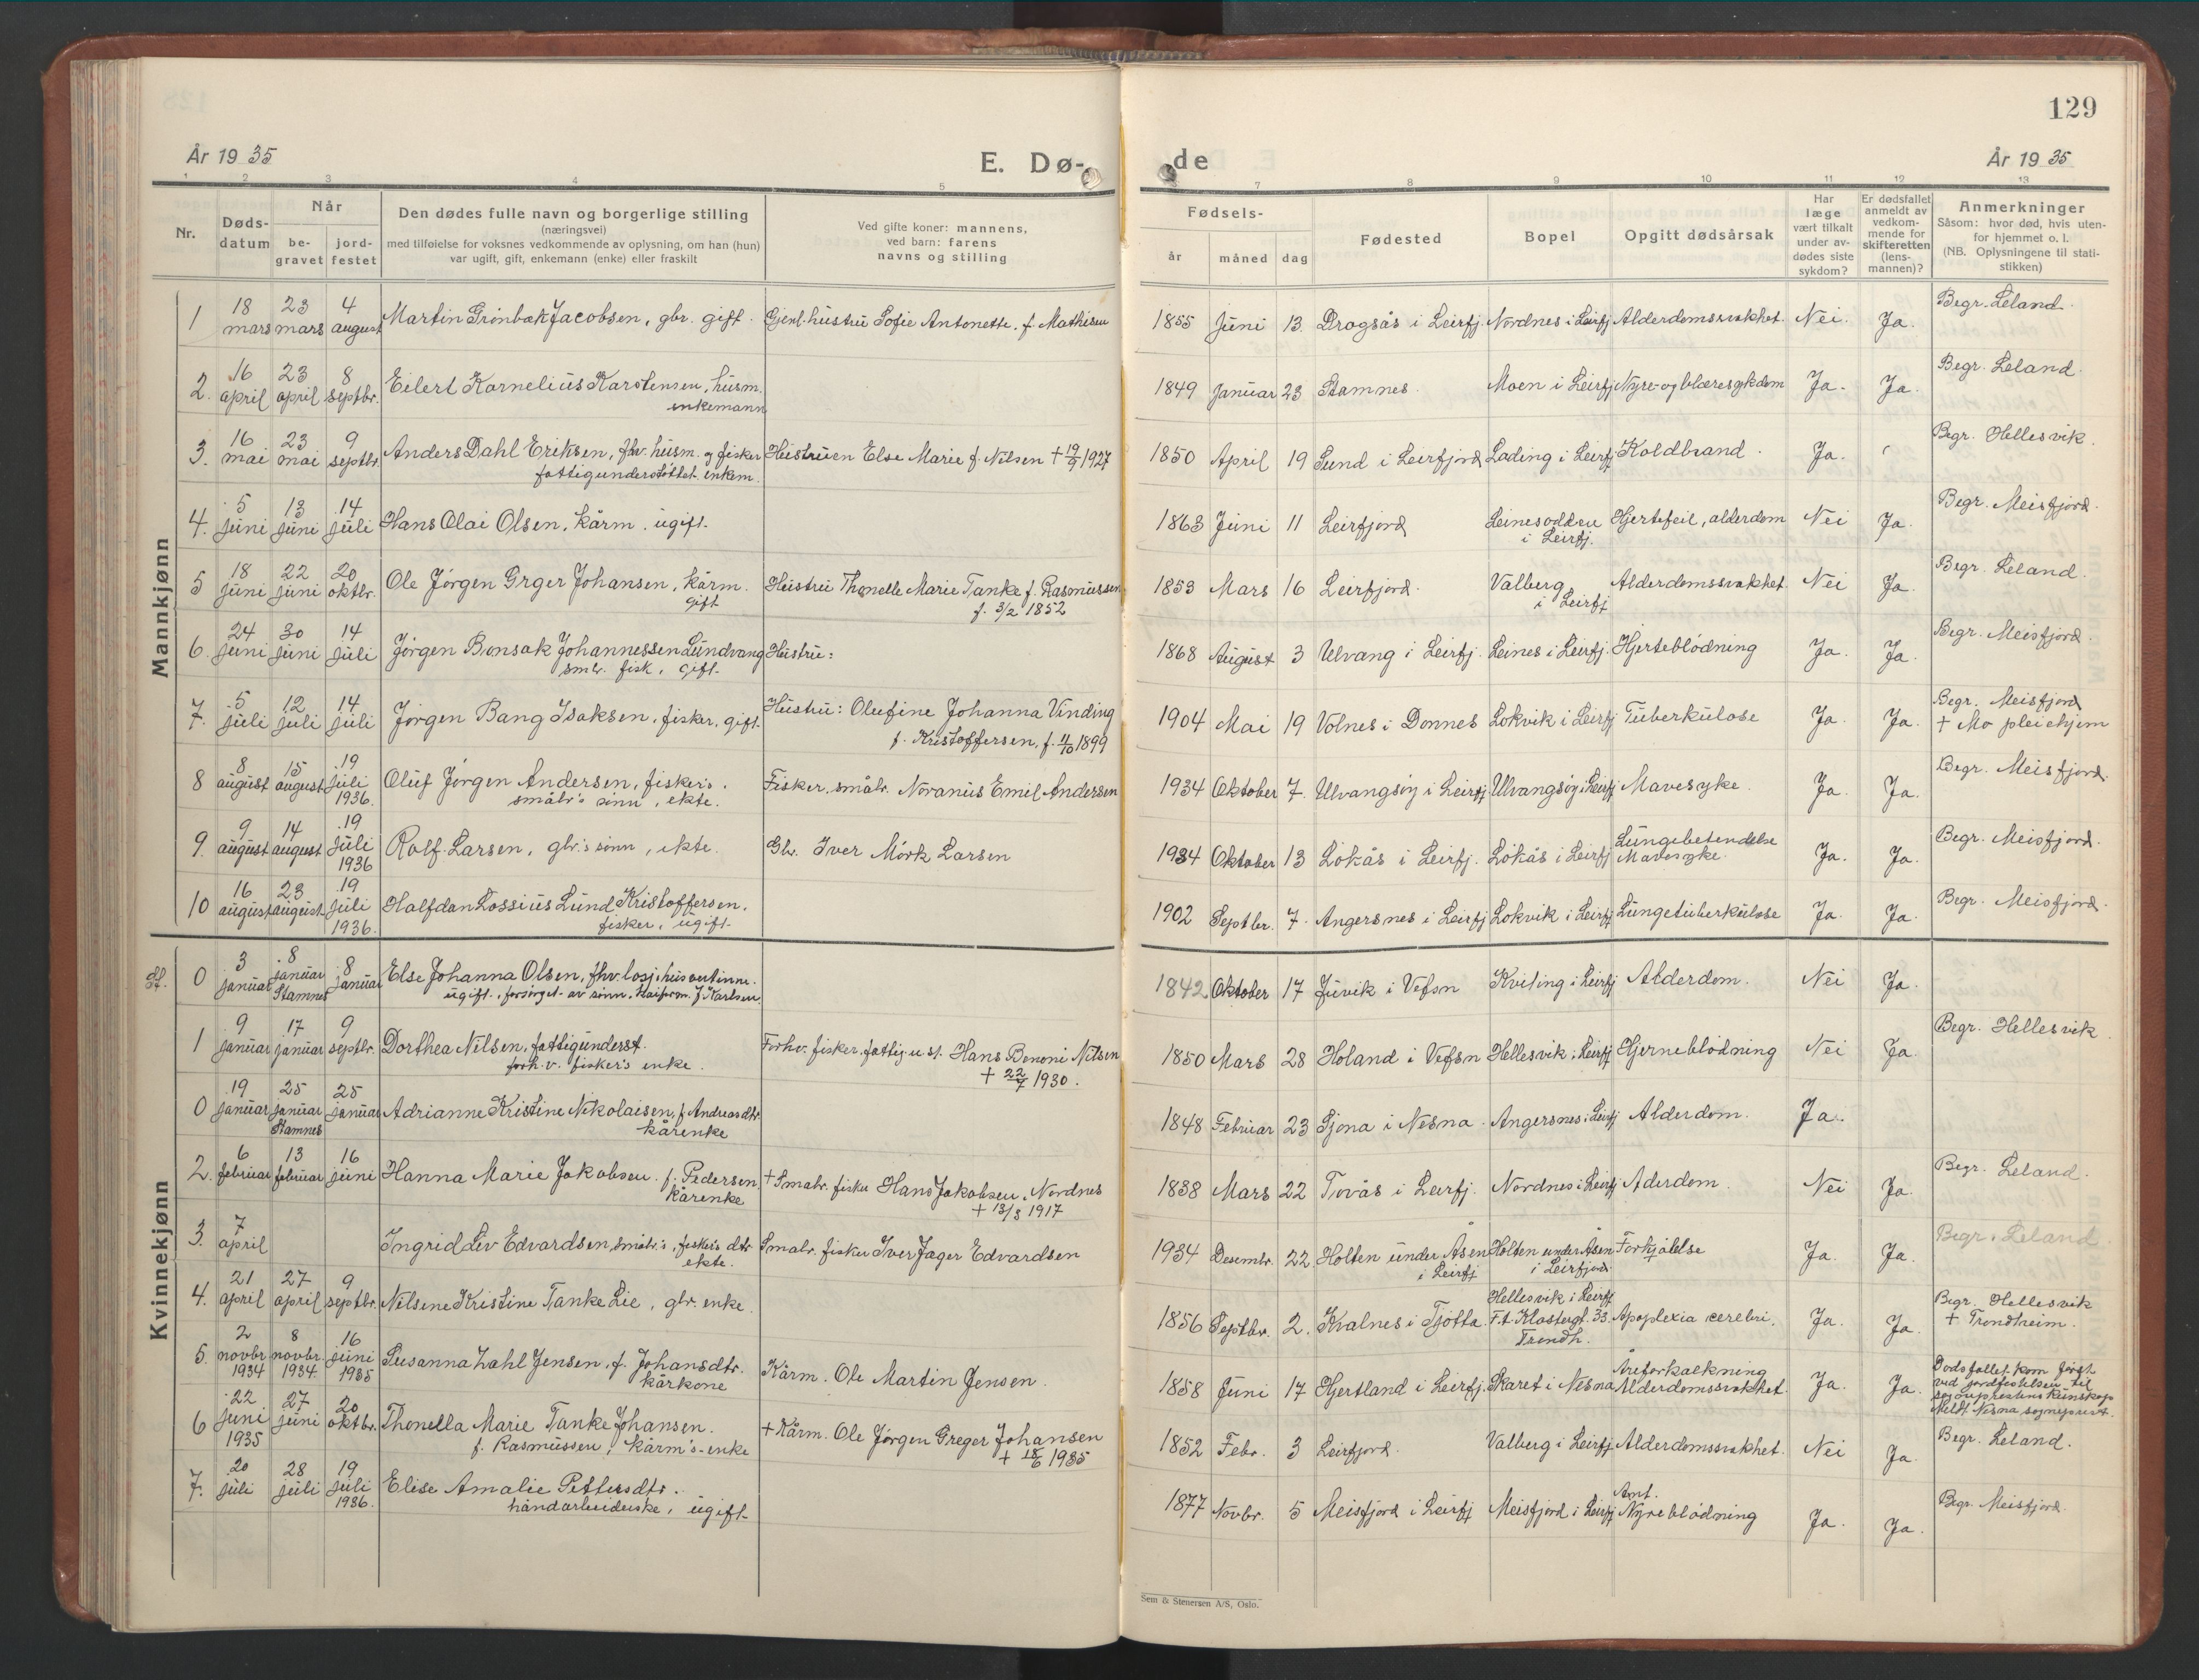 129
År 1935
E. Dø-
de
År 1935
1 2 3 4 5 7 8 9 10 11 12 13
Nr.
Døds-
datum
Når
be-
gravet
jord-
festet
Den dødes fulle navn og borgerlige stilling
(næringsvei)
med tilføielse for voksnes vedkommende av oplysning, om han (hun)
var ugift, gift, enkemann (enke) eller fraskilt
Ved gifte koner: mannens,
ved barn: farens
navns og stilling
Fødsels-
år måned dag
Fødested
Bopel
Opgitt dødsårsak
Har
læge
vært tilkalt
under av-
dødes siste
sykdom?
Er dødsfallet
anmeldt av
vedkom-
mende for
skifteretten
(lens-
mannen)?
Anmerkninger
Såsom: hvor død, hvis uten-
for hjemmet o. l.
(NB. Oplysningene til stati-
stikken)
Mannkjønn
1 18 mars 23 mars 4 august Martin Grönbæk Jacobsen, gbr. gift. Gjenl. hustru Sofie Antonette f. Mathisen 1855 Juni 13 Dragsås i Leirfj. Nordnes i Leirfj. Alderdomssvakhet. Nei. Ja. Begr. Leland.
2. 16 april 23 april 8 septbr. Eilert Kornelius Karstensen, husm. 1849 Januar 23 Stamnes. Moen i Leirfj. Nyre- og blæresykdom Ja. Ja. Begr. Leland.
enkemann
3. 16 mai 23 mai 9 septbr. Anders Dahl Eriksen, fhv. husm. og fisker Hustruen Else Marie f. Nilsen + 19/9 1927 1850 April 19 Sund i Leirfjord Lading i Leirfj Koldbrand. Ja. Begr. Hellesvik.
fattigunderstöttet. enkem.
4. 5 juni 13 juni 14 juli Hans Olai Olsen, kårm. ugift. 1863 Juni 11 Leirfjord Leinesodden Hjertefeil, alderdom Nei Ja. Begr. Meisfjord.
i Leirfj.
5 18 juni 22 juni 20 oktbr. Ole Jörgen Grger Johansen, kårm. Hustru Thonelle Marie Tanke f. Rasmussen 1853 Mars 16 Leirfjord. Valberg Alderdomssvakhet Nei Ja. Begr. Leland.
gift f. 3/2 1852 i Leirfj
6. 24 juni 30 juni 14 juli Jörgen Bonsak Johannessen Lundvang Hustru: 1868 August 3 Ulvang i Leirfj. Leines i Leirfj. Hjerteblödning Ja. Ja. Begr. Meisfjord.
smbr. fisk. gift.
7. 5 juli 12 juli 14 juli Jörgen Bang Isaksen, fisker, gift. Hustru: Olufine Johanna Vinding 1904 Mai 19 Volnes i Donnes Lokvik i Leirfj Tuberkulose Ja. Ja. Begr. Meisfjord
f. Kristoffersen, f. 11/10 1899 + Mo pleiehjem
8 8 august 15 august 19 juli 1936. Oluf Jörgen Andersen, fisker's. Fisker, småbr. Noranus Emil Andersen 1934 Oktober 7. Ulvangsöy i Leirfj Ulvangsöy i Leirfj Mavesyke. Ja. Ja. Begr. Meisfjord.
småbr's sönn, ekte.
9. 9 august 14 august 19 juli 1936 Rolf Larsen, gbr.'s sönn, ekte. Gbr. Iver Mörk Larsen 1934 Oktober 13 Lökås i Leirfj. Lökås i Leirfj Lungebetendelse Mavesyke. Ja. Ja. Begr. Meisfjord.
10 16 august 23 august 19 juli 1936. Halfdan Lossius Lund Kristoffersen. 1902 Septbr. 7. Angersnes i Leirfj Lokvik i Leirfj Lungetuberkulose Ja. Ja. Begr. Meisfjord.
fisker, ugift.
Kvinnekjønn
0 3 januar 8 januar Stamnes 8 januar Else Johanna Olsen, fhv. losjihusvertinne. 1842 Oktober 17 Juvik i Vefsn Kviting i Leirfj Alderdom. Nei Ja.
ugift, forsörget av sönn, J. Karlsen.
1 9 januar 17 januar 9 septbr. Dorthea Nilsen, fattigunderst. Forhv. fisker, fattigu.st. Hans Benoni Nilsen 1850 Mars 28 Holand i Vefsn Hellesvik i Leirfj Hjerneblödning Nei Ja. Begr. Hellesvik.
forh.v. fisker's enke. + 22/7 1930.
0 19 januar 25 januar Stamnes 25 januar Adrianne Kristine Nikolaisen, f. Andreasdtr. 1848 Februar 23 Sjona i Nesna. Angersnes i Leirfj Alderdom. Ja.
kårenke
2. 6 februar 13 februar 16 juni Hanna Marie Jakobsen. f. Pedersen. + Smabr. fisker Hans Jakobsen, Nordnes 1838 Mars 22 Tovås i Leirfj. Nordnes i Leirfj Aderdom. Nei Ja. Begr. Leland.
kårenke + 13/8 1917
3. 7 april Ingrid Liv Edvardsen, småbr.'s, fisker's dtr. Smabr. fisker Iver Jager Edvardsen 1934 Desembr. 22 Holten under Åsen Holten under Åsen Forkjölelse Ja. Ja. Begr. Leland.
ekte. i Leirfj i Leirfjord.
4. 21 april 27 april 9 septbr. Nilsene Kristine Tanke Lie, gbr. enke. 1856 Septbr. 2. Kvalnes i Tjötta. Hellesvik i Leirfj F.t. Klostergt. 33. Trondh. Apoplexia cerebri. Ja. Ja. Begr. Hellesvik
+ Trondheim.
5. 2 novbr 1934 8 novbr. 1934 16 juni 1935 Susanna Zahl Jensen, f. Johansdtr. Kårm. Ole Martin Jensen. 1858 Juni 17 Hjertland i Leirfj. Skaret i Nesna Åreforkalkning Alderdomssvakhet. Ja. Ja. Dodsfallet kom först
kårkone ved jordfestelsen til
sogneprestens kunskap
Meldt Nesna sogneprest.
6 22 juni 1935 27 juni 20 oktbr. Thonella Marie Tanke Johansen. + Kårm. Ole Jörgen Greger Johansen 1852 Febr. 3 Leirfjord. Valberg i Leirfj Alderdomssvakhet. Nei Ja. Begr. Leland.
f. Rasmussen, kårm's-enke + 18/6 1935
7. 20 juli 28 juli 19 juli 1936. Elise Amalie Pettersdtr. 1877 Novbr. 5 Meisfjord i Leirfj Meisfjord i Leirfj Nyreblödning Ja. Ja. Begr. Meisfjord.
håndarbeiderske, ugift.
Sem & Stenersen A/S, Oslo.